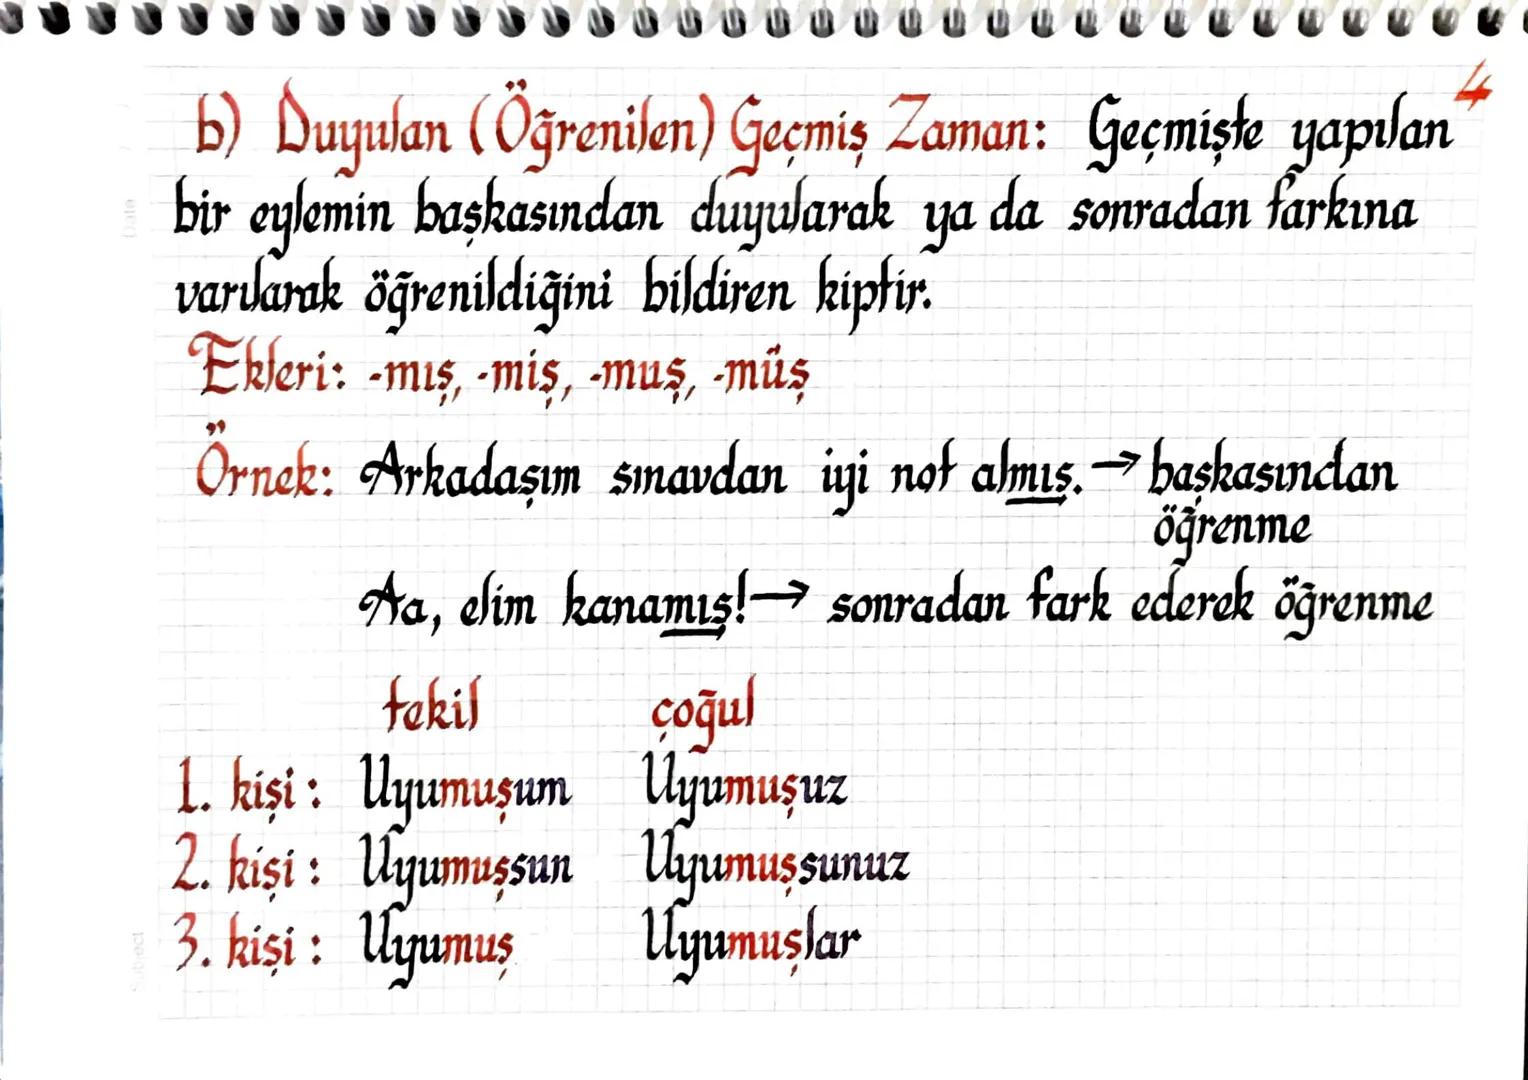 4
b) Duyulan (Öğrenilen) Geçmiş Zaman: Geçmişte yapılan
bir eylemin başkasından duyularak ya da sonradan farkına
varılarak öğrenildiğini bildiren kiptir.
Ekleri: -mış, -miş, -muş, -müş
Örnek: Arkadaşım sınavdan iyi not almış. → başkasından
öğrenme
Aa, elim kanamış! → sonradan fark ederek öğrenme
tekil çoğul
1. kişi : Uyumuşum Uyumuşuz
2. kişi : Uyumuşsun Uyumuşsunuz
3. kişi : Uyumuş Uyumuşlar
Date
Subject